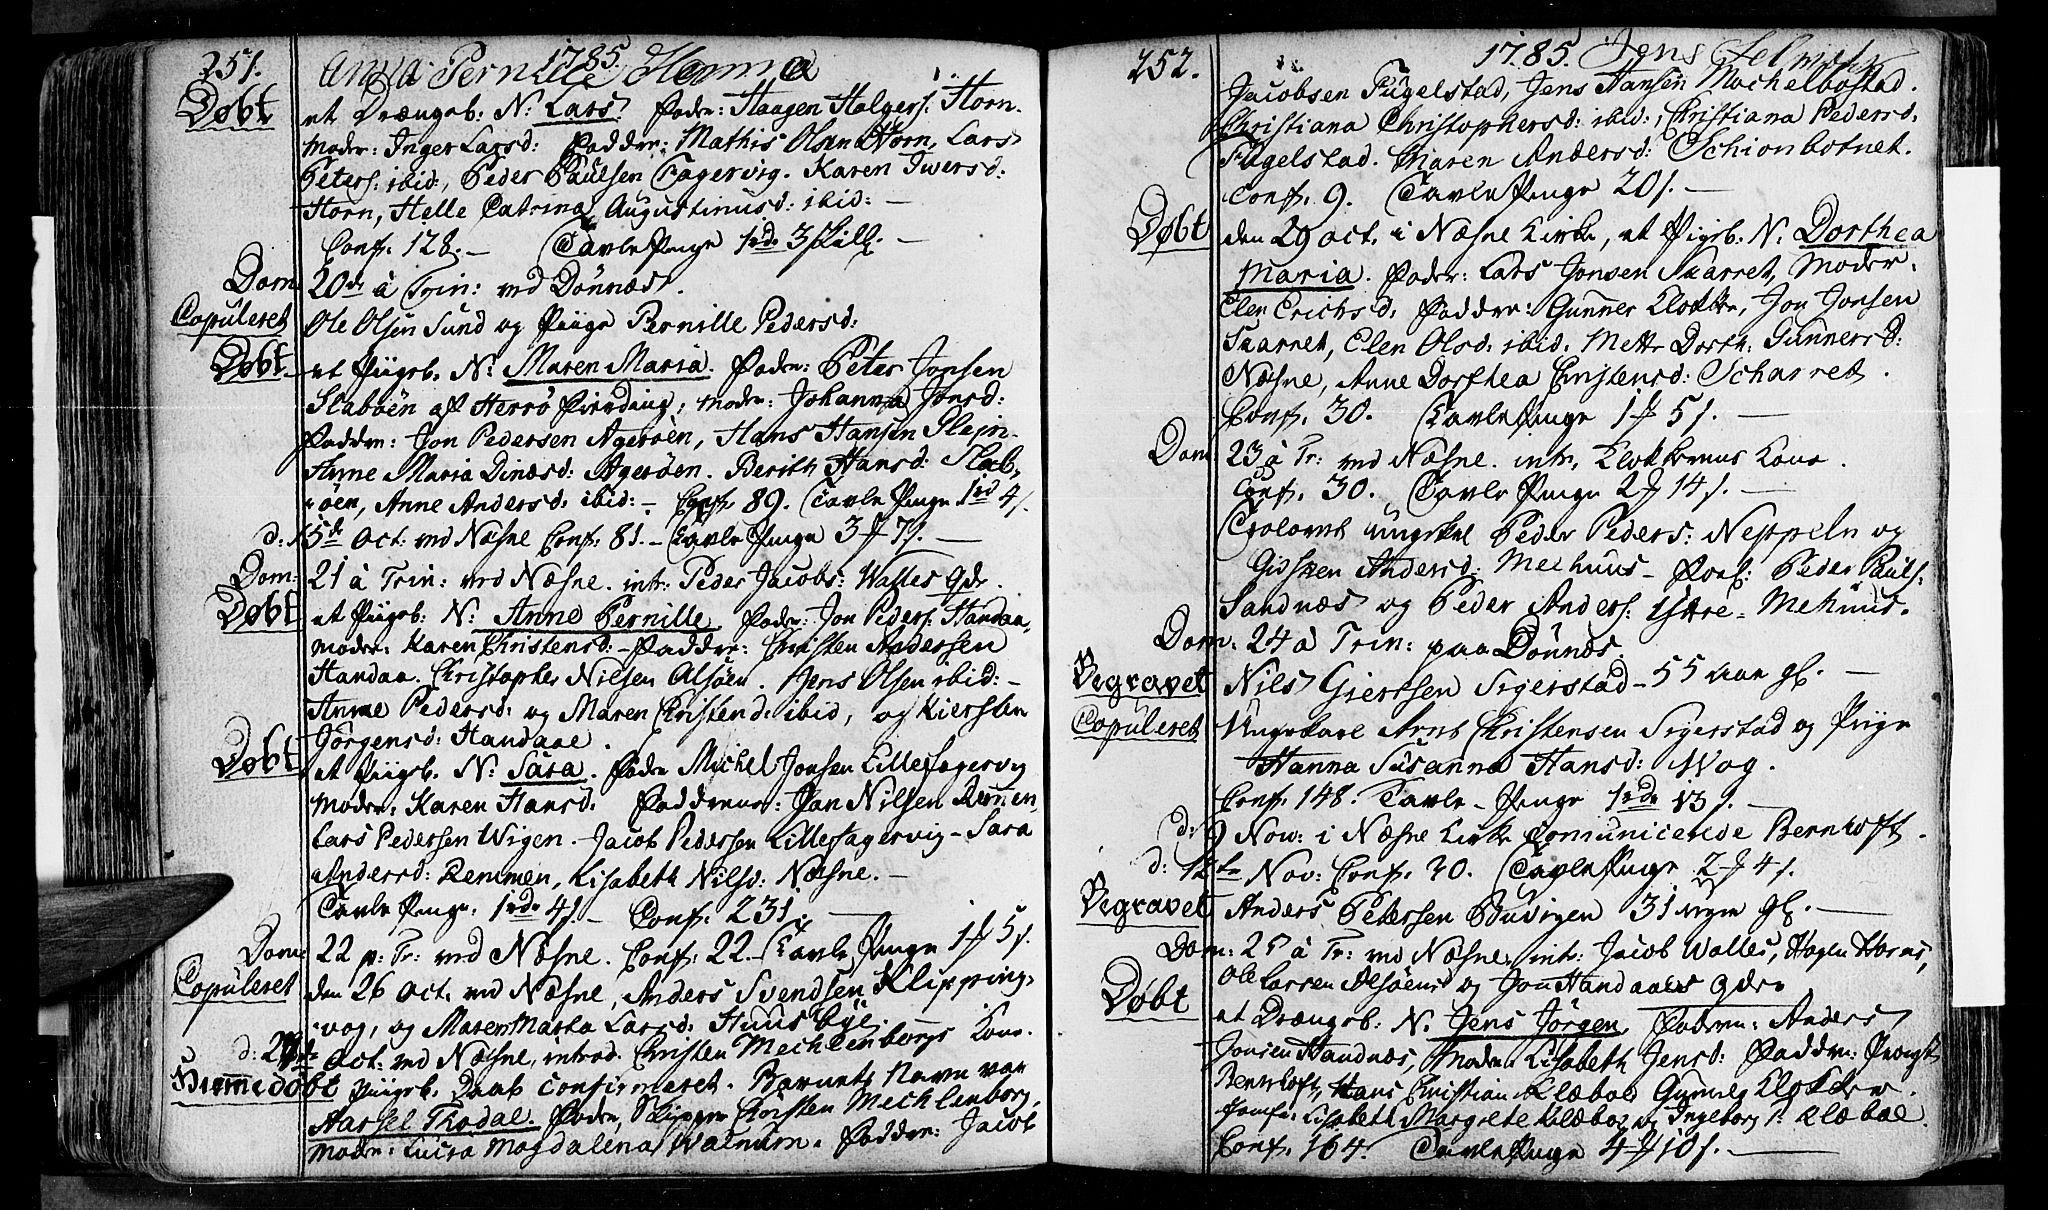 251. 1785.
Anna Pernille Hemma
Døbt et Drængeb. N: Lars. Fader: Haagen Holgers: Horn.
Moder: Inger Larsd: Faddre: Mathis Olsen Horn, Lars
Peters: ibid, Peder Paulsen Fagervig. Karen Iwersd:
Horn, Helle Catrina Augustinusd: ibid: —
Conf. 128. — Tavle Penge 1rd 3 skill. —
Dom. 20de à Trin: ved Dönnæs.
Copuleret Ole Olsen Sund og Piige Pernille Pedersd:
Døbt et Piigeb. N: Maren Maria. Fader: Peter Jonsen
Slaböen af Herrö Fierding, Moder: Johanna Jonsd:
Faddre: Jon Pedersen Ageröen, Hans Hansen
Anne Maria Dinæsd: Agerøen. Berith Hansd: Slab-
öen, Anne Andersd: ibid: — Conf. 89. Tavle Penge 1rd 4s.
d: 15de Oct: ved Næsne Conf: 81. — Tavle Penge 3 7s. —
Dom: 21 à Trin: ved Næsne. intr: Peder Jacobs: Walles
Døbt et Piigeb. N: Anne Pernille. Fader: Jon Peders: Handaa,
Moder: Karen Christensd: — Faddre: Christen Andersen
Handaa. Christopher Nilsen Alsöen. Jens Olsen ibid: —
Anne Pedersd: og Maren Christend: ibid, og Kiersten
Jörgensd: Handaae.
Døbt et Piigeb. N: Sara. Fader Michel Jonsen Lillefagervig
Moder: Karen Hansd: Faddrene: Jan Nilsen Remen,
Lars Pedersen Wigen. Jacob Pedersen Lillefagervig — Sara
Andersd: Remmen, Lisabeth Nilsd: Næsne. —
Tavle Penge: 1rd 4s — Conf: 231. —
Dom: 22 p: Tr: ved Næsne. Conf: 22 — Tavle Penge 1 5s.
Copuleret den 26 Oct. ved Næsne, Anders Svendsen Klipping-
vog, og Maren Marta Larsd: Huusbye.
d: Oct: ved Næsne, introd. Christen Mechlenborgs Kone.
Hiemedøbt Piigeb. Daab Confirmeret. Barnets Navn var
Aarsel Thodal. Fader, Skipper Christen Mechlenborg,
Moder: Lucia Magdalena Walnum. Faddre: Jacob
252. 1785. Jens
Jacobsen Fugelstad, Jens Hansen Mochelbostad.
Christiana Christophersd: ibid:, Christiana Pedersd:
Fugelstad. Maren Andersd: Schionbotnet.
Conf. 9. Tavle Penge 20s. —
Døbt den 29 Oct. i Næsne Kirke, et Pigeb. N. Dorthea
Maria. Fader: Lars Jonsen Skarret, Moder:
Elen Erichsd: Faddre: Gunner Klokker, Jon Jonsen
Skarret, Elen Olsd: ibid. Mette Dorth: Gunnersd:
Næsne, Anne Dorthea Christensd: Scharret.
Conf. 30. Tavle Penge 1 5s. —
Dom: 23 à Tr: ved Næsne. intr. Klokkerens Kone.
Conf. 30. Tavle Penge 2 14s. —
Trolovet ungekel Peder Peders: Neppeln og
Gidsken Andersd: Mechuus — Forl: Peder Pauls:
Sandnæs og Peder Anders: Mehuus.
Dom: 24 à Trin: paa Dönnæs.
Begravet Niels Giertsen Sigerstad — 55 Aar gl. —
Copuleret Ungekarl Arnt Christensen Sigerstad og Piige
Hanna Susanna Hansd: Wog.
Conf. 148. Tavle — Penge 1rd 13s. —
d: 9 Nov: i Næsne Kirke Comunicerede Bernhoft.
d: 12te Nov: Conf. 20. Tavle Penge 2 4s. —
Begravet Anders Petersen Buvigen 31 uger gl. —
Dom: 25 à Tr: ved Næsne: intr: Jacob Walles, Hagen Horns,
Ole Larsen Alsöens og Jon Handaaes
Døbt et Drængeb: N. Jens Jörgen, Faderen: Anders
Jonsen Handnæs, Moder Lisabeth Jensd: Faddre: Provst
Bernhoft, Hans Christian Klæboe Klokker.
Jomfr: Lisabeth Margrete Klæboe og Ingeborg Klæboe.
Conf: 164. Tavle Penge 4 10s. —